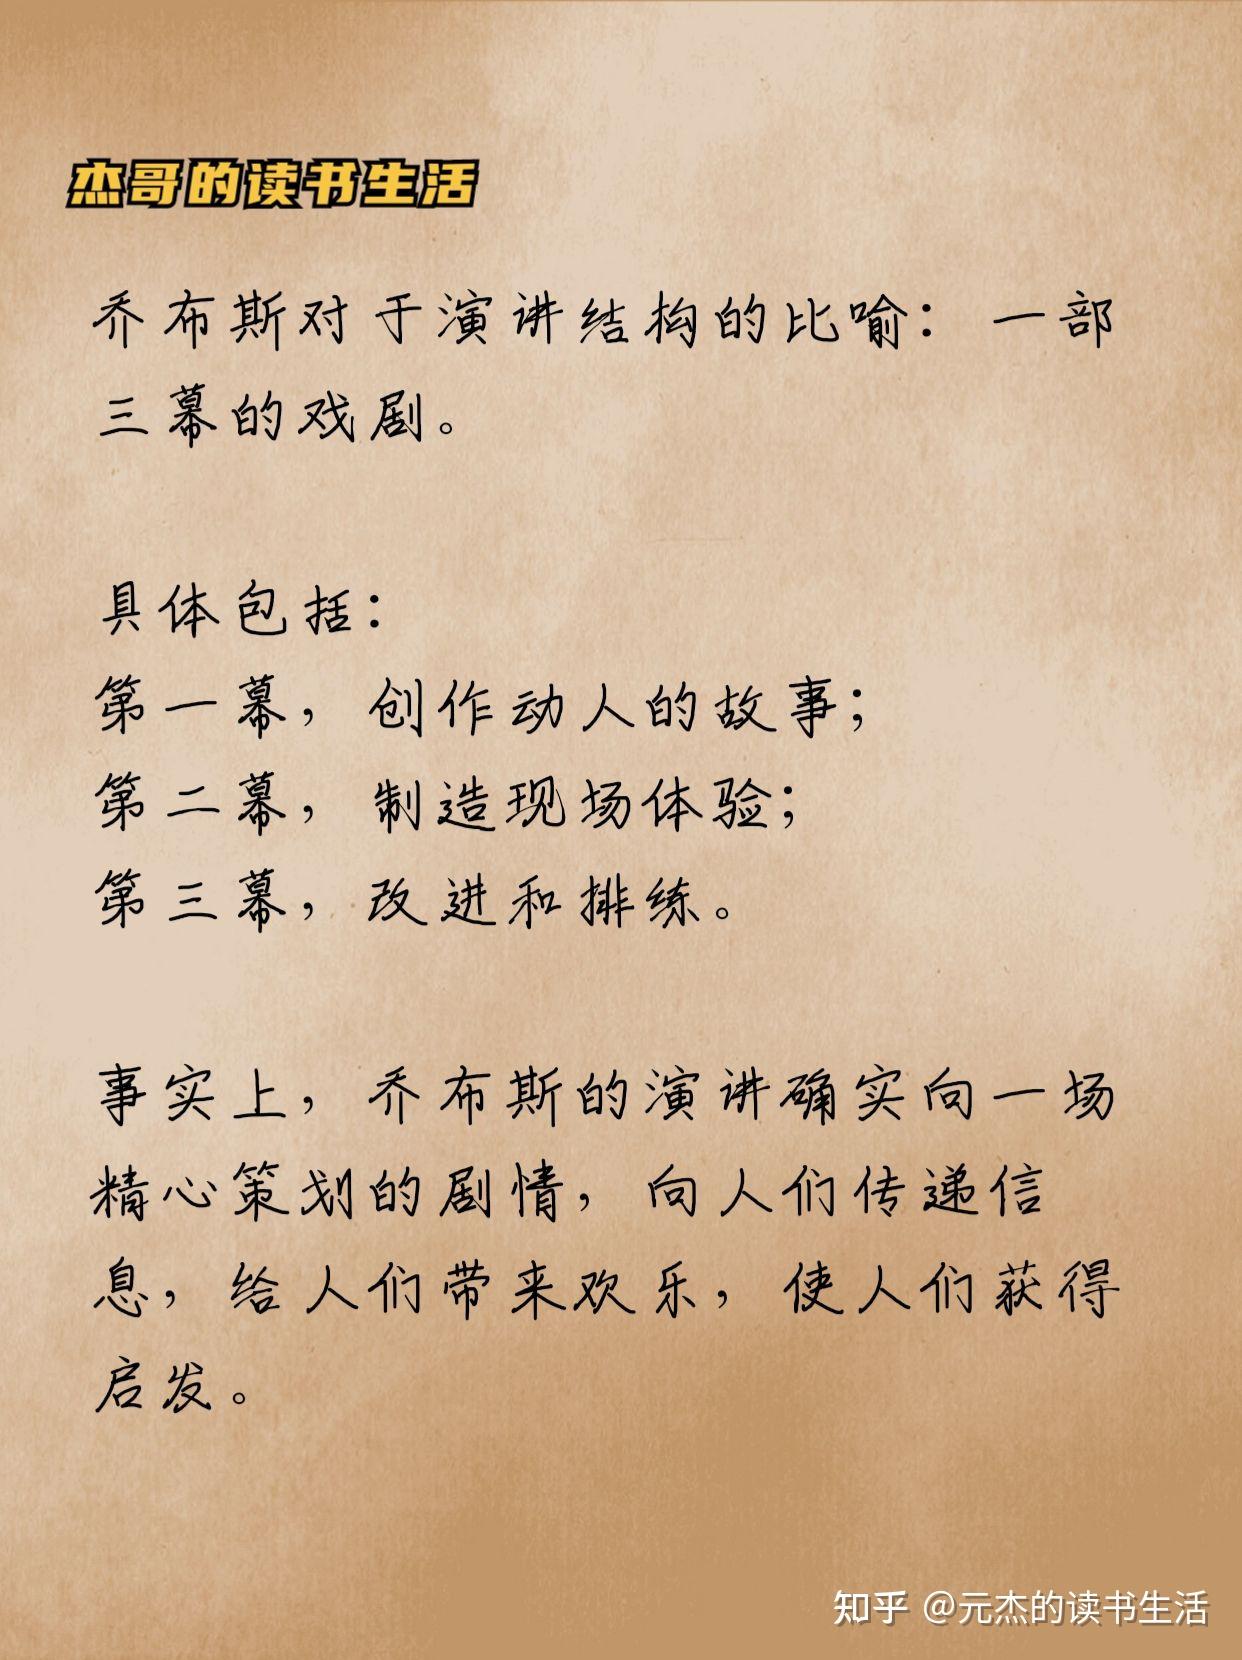 杰哥的读书生活
乔布斯对于演讲结构的比喻：一部
三幕的戏剧。
具体包括：
第一幕，创作动人的故事；
第二幕，制造现场体验；
第三幕，改进和排练。
事实上，乔布斯的演讲确实向一场
精心策划的剧情，向人们传递信
息，给人们带来欢乐，使人们获得
启发。
知乎 @元杰的读书生活